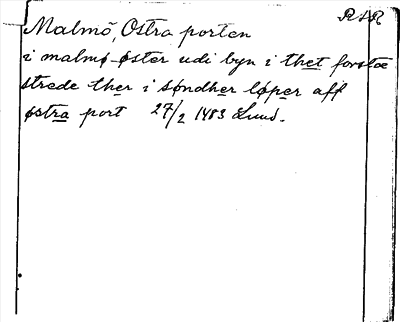 RAR
Malmö, Östra porten
i malmø øster udi byn i thet forstæ
strede ther i søndher løper aff
østra port 27/2 1483 Lund.